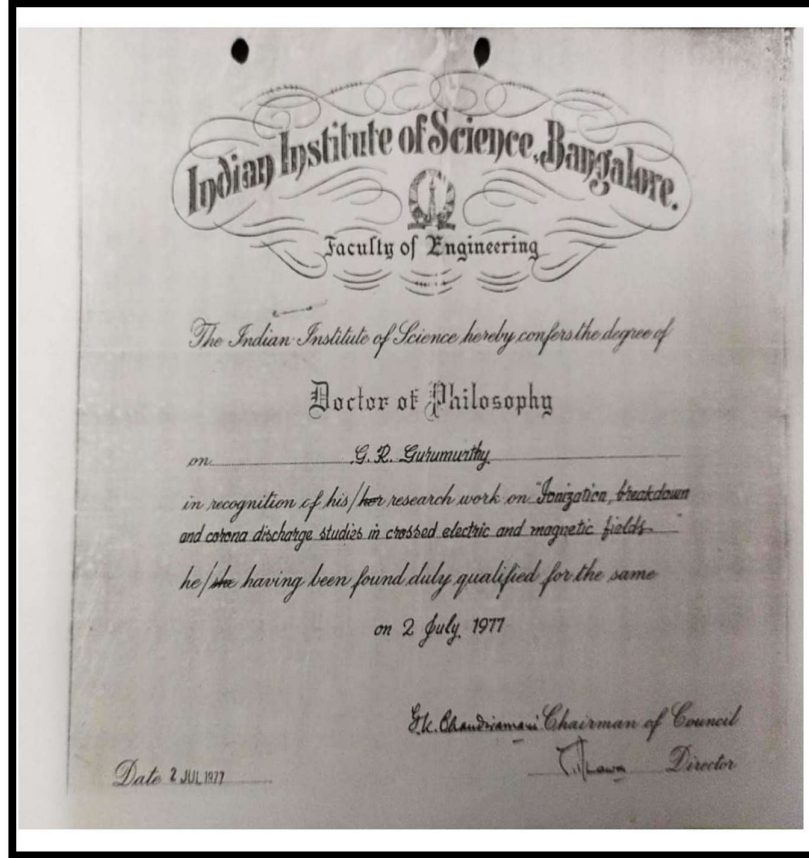 Indian Institute of Science, Bangalore.
Faculty of Engineering
The Indian Institute of Science hereby confers the degree of
Doctor of Philosophy
on G. R. Gurumurthy
in recognition of his/her research work on "Ionization, breakdown
and corona discharge studies in crossed electric and magnetic fields"
he/she having been found duly qualified for the same
on 2 July 1977
Chairman of Council
Director
Date 2 JUL 1977